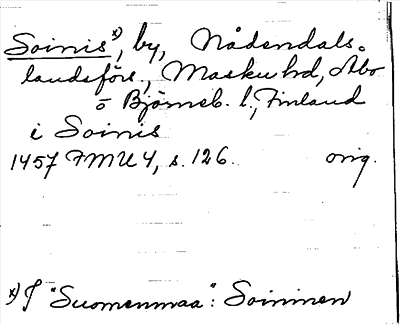 Soinis x), by, Nådendals.
landsförs., Masku hd, Åbo
o Björneb. l., Finland
i Soinis
1457 FMU 4, s. 126. orig.
x) I "Suomenmaa": Soininen